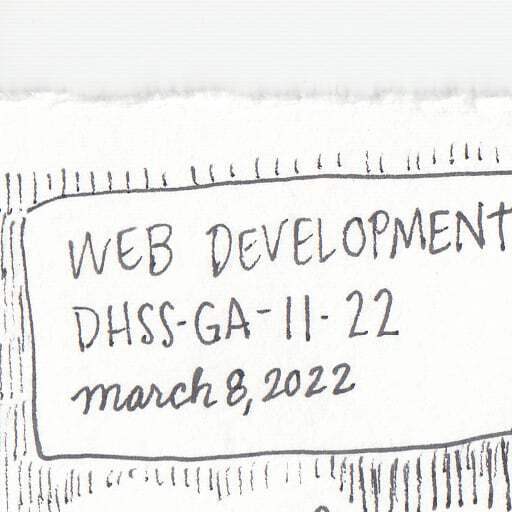 WEB DEVELOPMENT
DHSS-GA-11-22
march 8, 2022